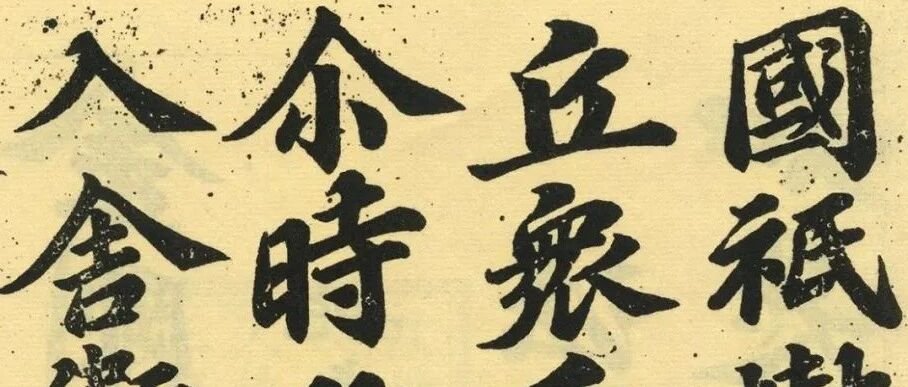 國祇
丘眾
尒時
入舍